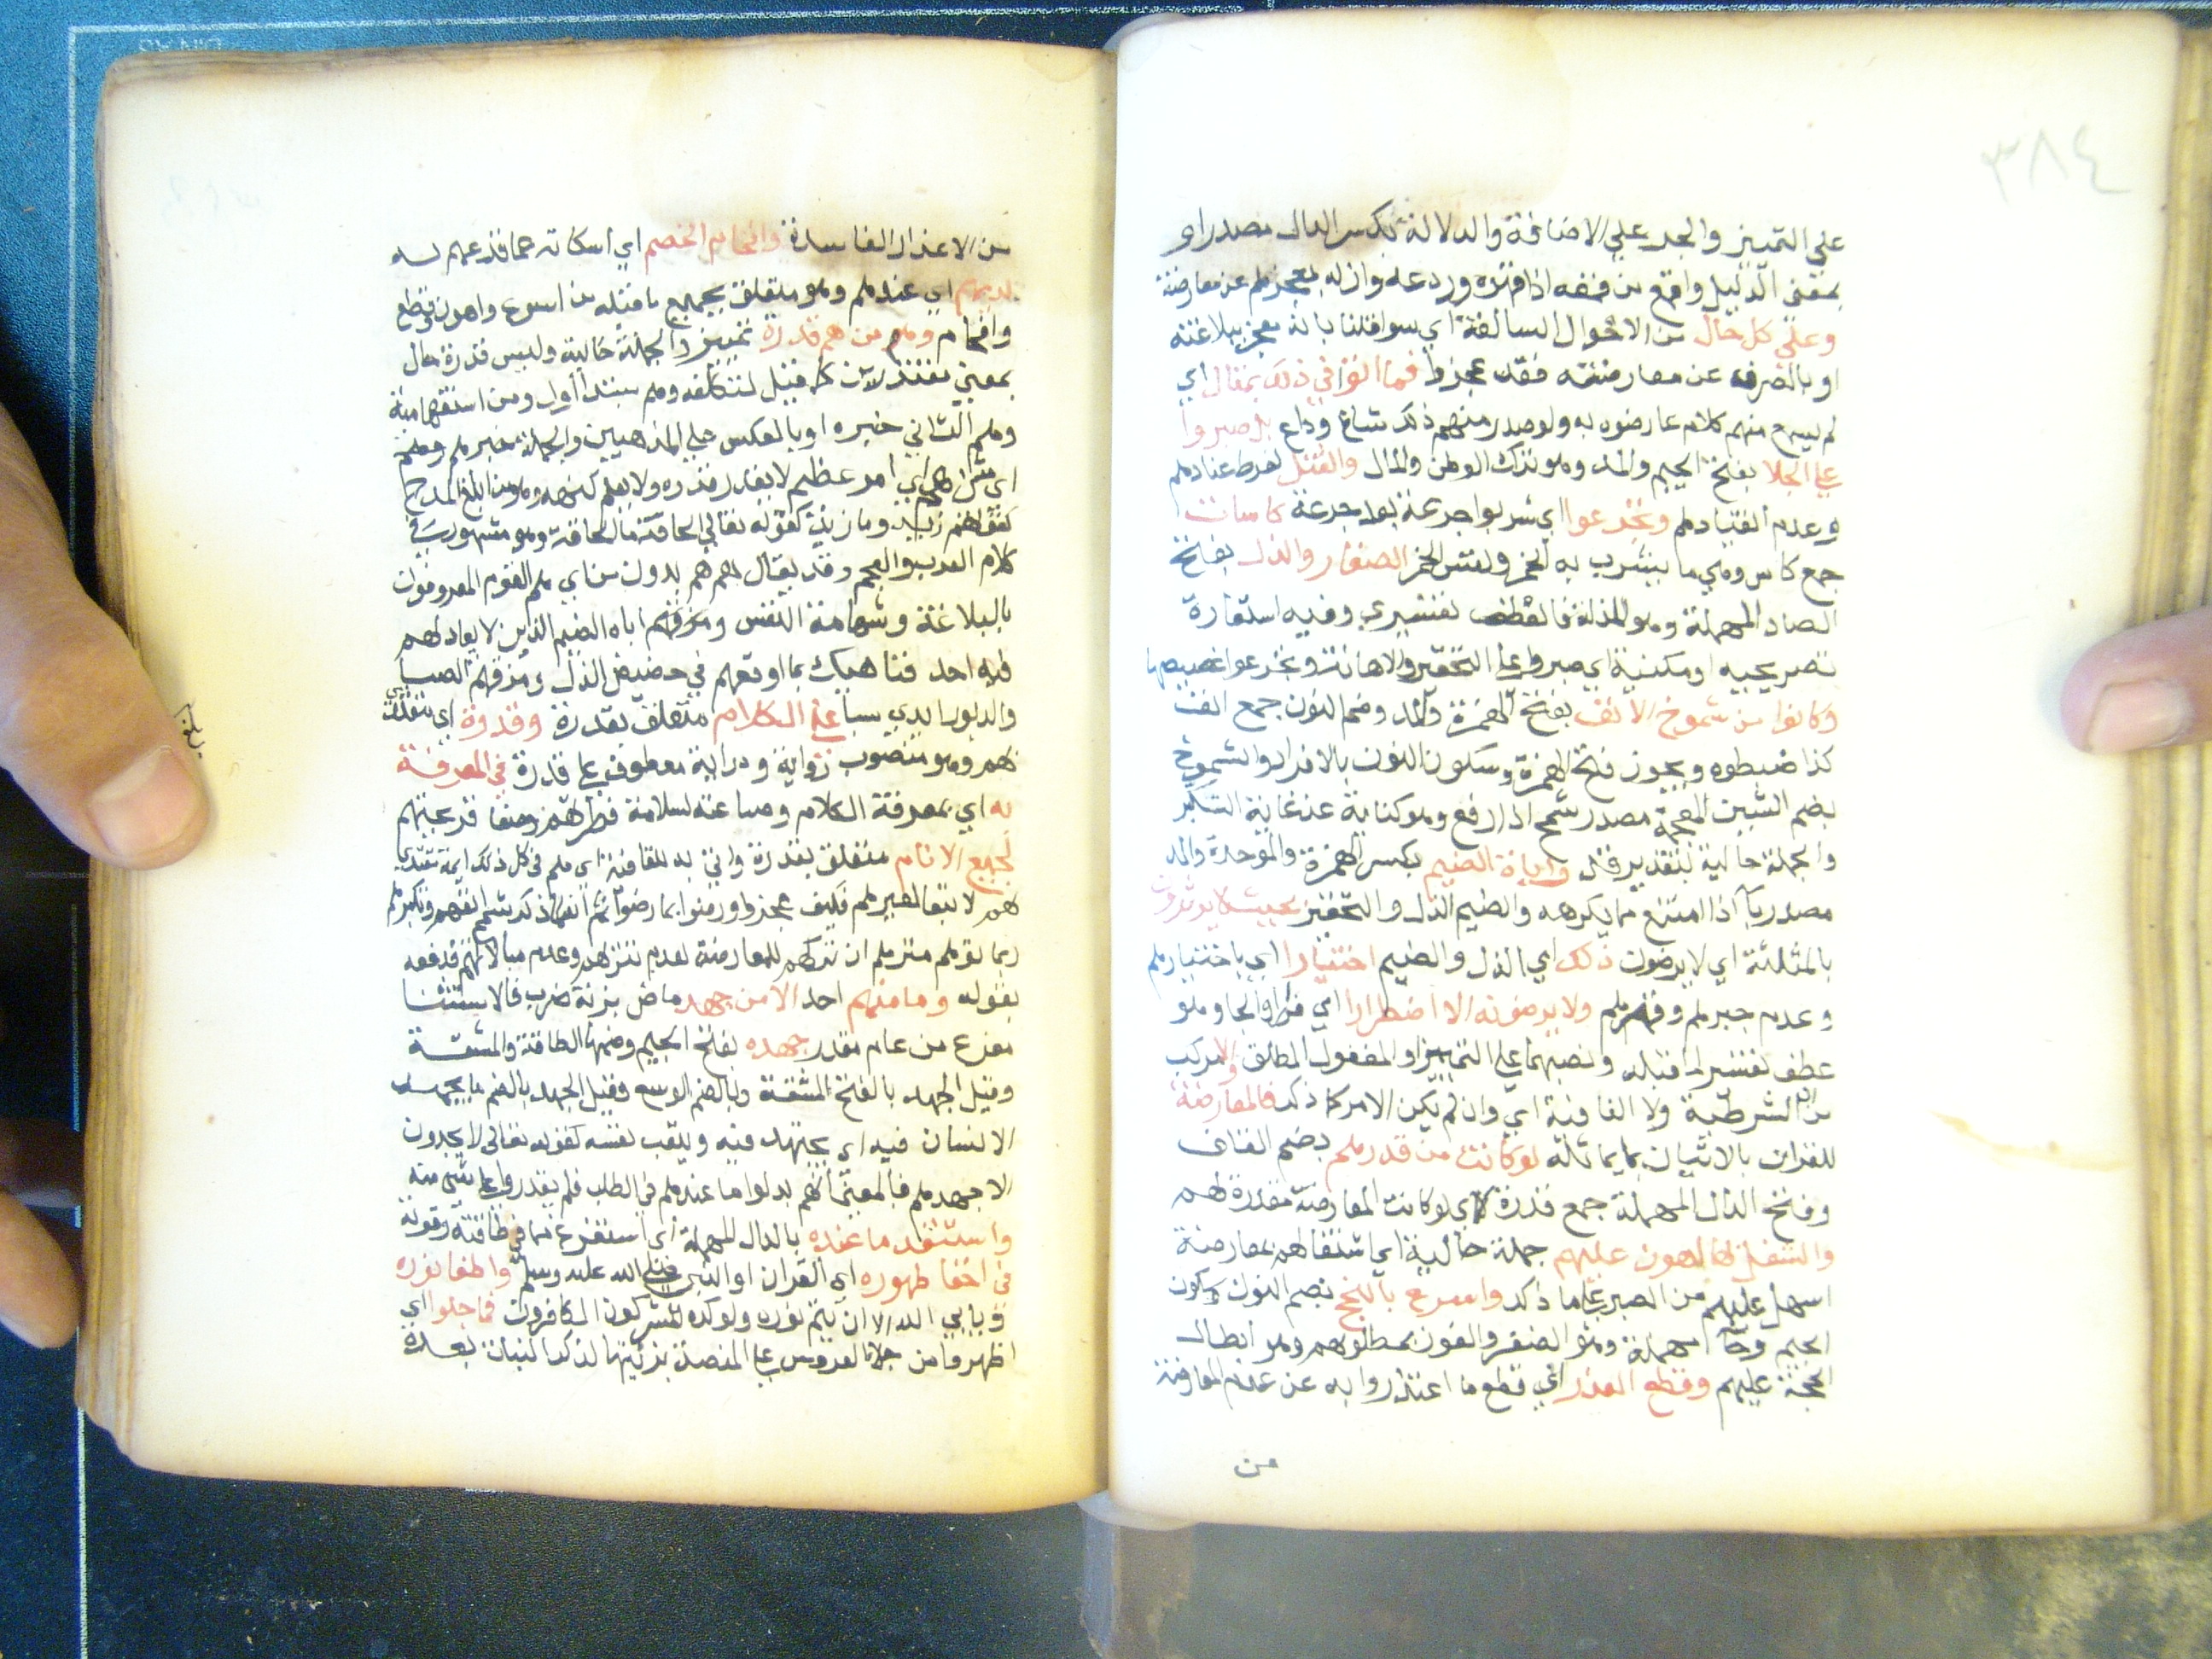 ٣٨٤
علي التميز والجر علي الاضافة والدلالة بكسر الدال مصدر او
بمعني الدليل واقع من قمعه اذا قهره وردعه واذله لعجزهم عن معارضته
وعلي كل حال من الاحوال السالفة اي سوا قلنا بانه معجز ببلاغته
او بالصرفه عن معارضته فقد عجزوا فما اتوا في ذلك بمقال اي
لم يسمع منهم كلام عارضوه به ولو صدر منهم ذلك شاع وذاع بل صبروا
علي الجلا بفتح الجيم والمد وهو ترك الوطن والمال والقتل لفرط عنادهم
وعدم انقيادهم وتجرعوا اي شربوا جرعة بعد جرعة كاسات
جمع كاس وهي ما يشرب به الخمر ونفس الخمر الصغار والذل بفتح
الصاد المهملة وهو المذلة فالعطف تفسيري وفيه استعارة
تصريحيه او مكنية اي صبروا علي التحقير والاهانة وتجرعوا غصصها
وكانوا من شموخ الانف بفتح الهمزة والمد وضم النون جمع انف
كذا ضبطوه ويجوز فتح الهمزة وسكون النون بالافراد والشموخ
بضم الشين المعجمة مصدر شمخ اذا ارفع وهو كناية عن غاية التكبر
والجملة حالية بتقدير قد واباة الضيم بكسر الهمزة والموحدة والمد
مصدر ابي اذا امتنع مما يكرهه والضيم الذل والتحقير بحيث لا يوثرون
بالمثلثة اي لا يرضون ذلك اي الذل والضيم اختيارا اي باختيارهم
وعدم جبرهم وقهرهم ولا يرضونه الا اضطرارا اي قهرا والجا وهو
عطف تفسير لما قبله ونصبهما علي التمييز او المفعول المطلق والا مركب
من ان الشرطية ولا النافية اي وان لم يكن الامر كما ذكر فالمعارضة
للقران بالاتيان بما يماثله لو كانت من قدرهم بضم القاف
وفتح الدال المهملة جمع قدرة اي لو كانت المعارضة مقدرة لهم
والشغل بها اهون عليهم جملة حالية اي اشتغالهم بمعارضة
اسهل عليهم من الصبر علي ما ذكر واسرع بالنجح بضم النون وسكون
الجيم وحا مهملة وهو الضفر والفوز بمطلوبهم وهو ابطال
الحجة عليهم وقطع العذر اي قطع ما اعتذروا به عن عدم المعارضة
من
من الاعذار الفاسدة وافحام الخصم اي اسكاته عما قد عمهم له
لديهم اي عندهم وهو متعلق بجميع ما قبله من اسرع واهون وقطع
وافحام وهم من هم قدرة تمييز والجملة حالية وليس قدرة حال
بمعني مقتدرين كما قيل لتكلفه وهم مبتدا اول ومن استفهامية
وهم الثاني خبره او بالعكس علي المذهبين والجملة خبر هم
اي امر عظيم لا يقدر قدره ولا يعلم كنهه وهو من ابلغ المدح
كقولهم زيد وما زيد كقوله تعالي الحاقة ما الحاقة وهو مشهور في
كلام العرب والعجم وقد يقال هم هم بدون من اي هم القوم المعروفون
بالبلاغة وشهامة النفس ومعرفتهم اباه الضيم الذين لا يعادلهم
فيه احد فناهيك بما اوقعهم في حضيض الذل ومزقهم الصبا
والدبور ايدي سبا علي الكلام متعلق بقدرة وقدوة اي يقتدي
بهم وهو منصوب رواية ودراية معطوف علي قدرة في المعرفة
به اي بمعرفة الكلام وصياغته لسلامة فطرتهم وصفا قريحتهم
لجميع الانام متعلق بقدرة واتي به للقافية اي هم في كل ذلك ايمة تقتدي
بهم لا تبعا لغيرهم فكيف عجزوا ورضوا بما رضوا ثم انه لما ذكر شمم انفهم وتكبرهم
ربما توهم متوهم ان تركهم للمعارضة لعدم تنزلهم وعدم مبالاتهم فدفعه
بقوله وما منهم احد الا من جهد ماض بزنة ضرب فالاستثنا
مفرغ من عام مقدر جهده بفتح الجيم وضمها الطاقة والمشقة
وقيل الجهد بالفتح المشقة وبالضم الوسع وقيل الجهد بالضم ما يجهد
الانسان فيه اي يجتهد فيه ويتعب نفسه كقوله تعالي لا يجدون
الا جهدهم فالمعني انهم بذلوا ما عندهم في الطلب فلم يقدروا علي شي منه
واستنفد ما عنده بالدال المهملة اي استفرغ ما في طاقته وقوته
في اخفا ظهوره اي القران او النبي صلي الله عليه وسلم واطفا نوره
ويابي الله الا ان يتم نوره ولو كره المشركون الكافرون فما جلوا اي
اظهروا من جلا العروس علي المنصة بزينتها لذكر البنات بعده
بلغ